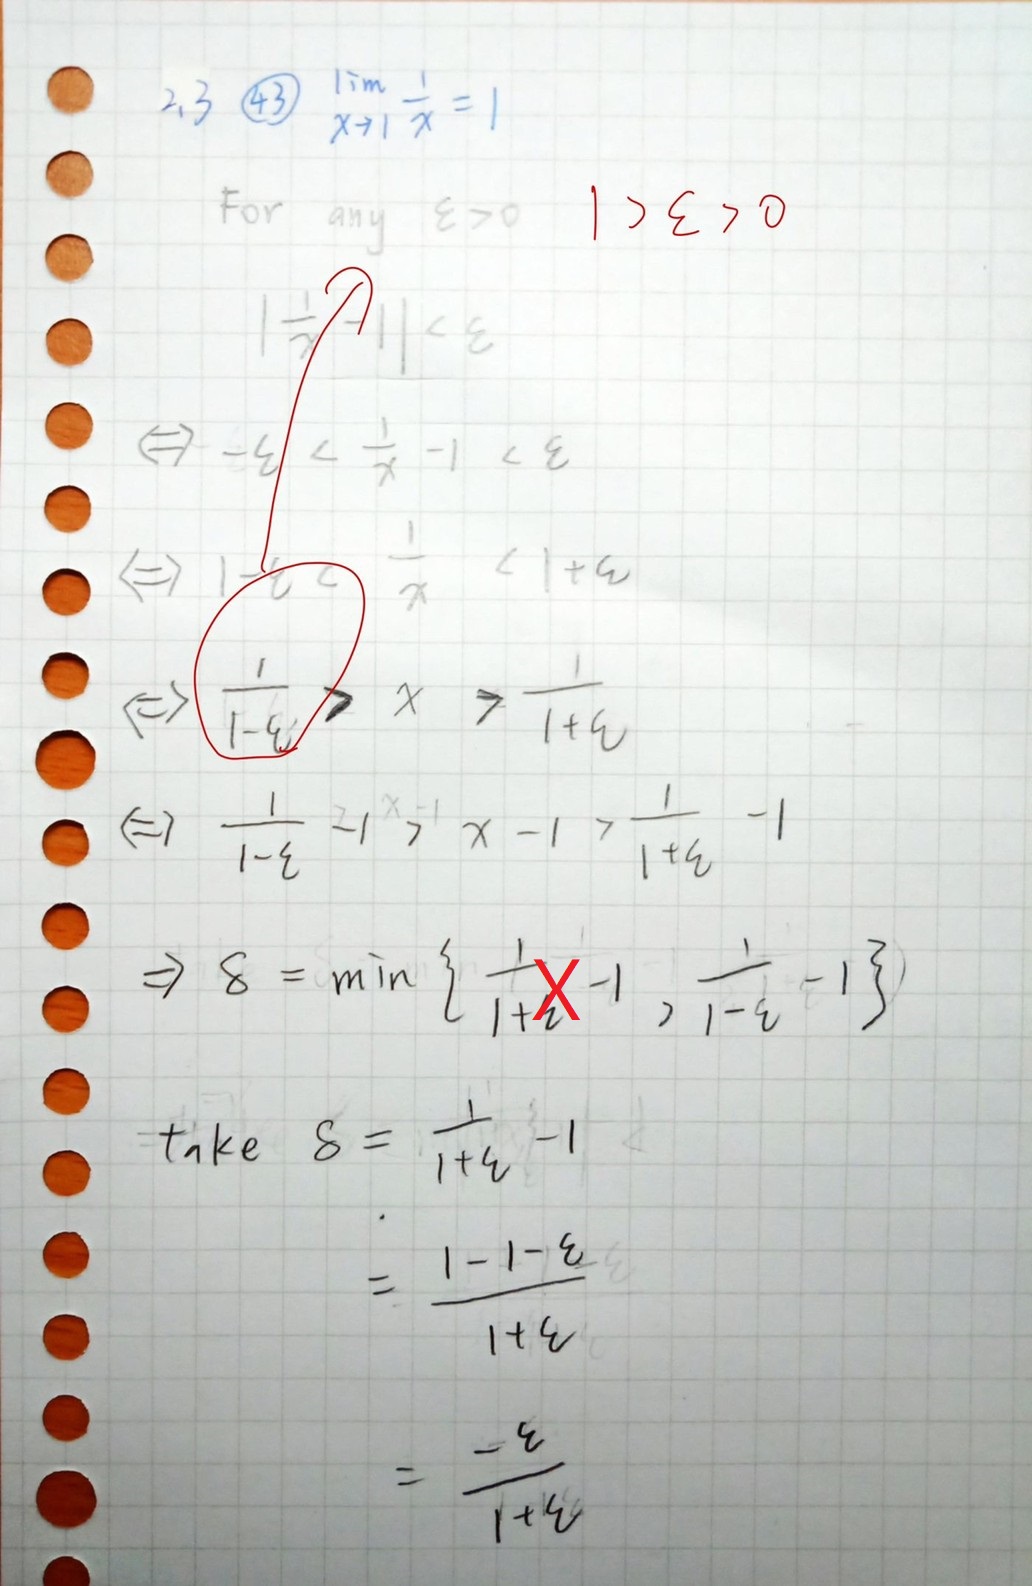 2.3 (43) lim x→1 1/x = 1
For any ε>0 1 > ε > 0
|1/x - 1| < ε
⇔ -ε < 1/x - 1 < ε
⇔ 1-ε < 1/x < 1+ε
⇔ 1/(1-ε) > x > 1/(1+ε)
⇔ 1/(1-ε) - 1 > x - 1 > 1/(1+ε) - 1
⇒ δ = min { 1/(1+ε) - 1 , 1/(1-ε) - 1 }
X
take δ = 1/(1+ε) - 1
= (1-1-ε)/(1+ε)
= -ε/(1+ε)